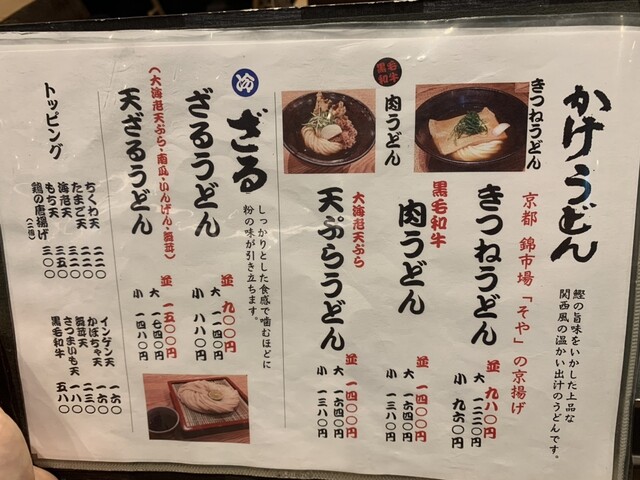 かけうどん
鰹の旨味をいかした上品な
関西風の温かい出汁のうどんです。
京都 錦市場「そや」の京揚げ
きつねうどん
きつねうどん
並 九八〇円
大 一二二〇円
小 九六〇円
黒毛和牛
肉うどん
黒毛和牛
肉うどん
並 一四〇〇円
大 一六四〇円
小 一三八〇円
大海老天ぷら
天ぷらうどん
並 一四〇〇円
大 一六四〇円
小 一三八〇円
冷
ざる
しっかりとした食感で噛むほどに
粉の味が引き立ちます。
ざるうどん
並 九〇〇円
大 一一四〇円
小 八八〇円
(大海老天ぷら・南瓜・いんげん・舞茸)
天ざるうどん
並 一五〇〇円
大 一七四〇円
小 一四八〇円
トッピング
ちくわ天
たまご天
海老天
もち天
鶏の唐揚げ(二個)
三〇〇
インゲン天 一六〇
かぼちゃ天 一六〇
舞茸天 二三〇
さつまいも天 一八〇
黒毛和牛 五八〇